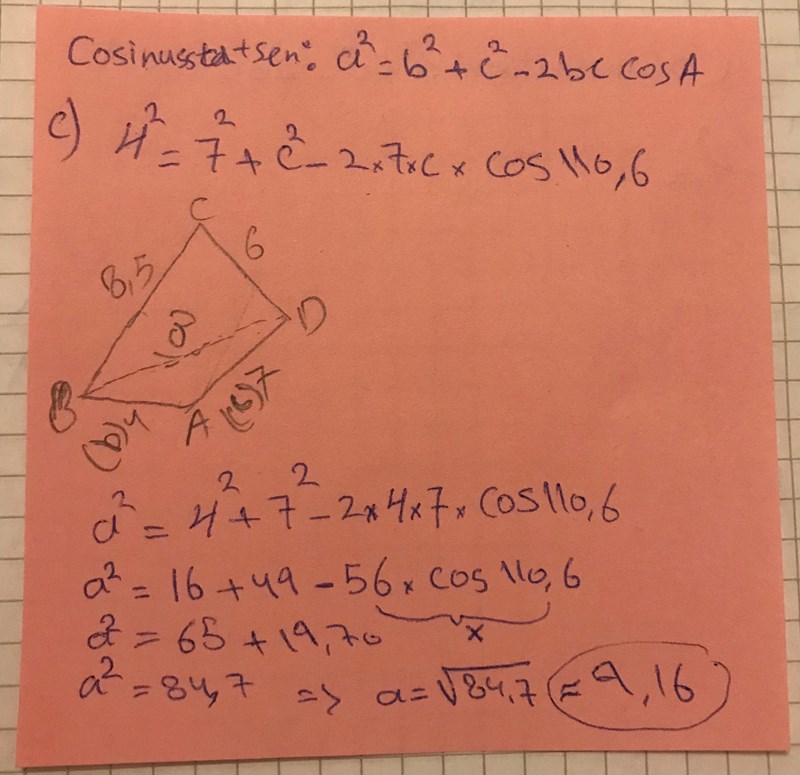 Cosinussatsen: a² = b² + c² - 2bc cosA
c) 4² = 7² + c² - 2×7×c × cos110,6
C
8,5
6
a
D
B
(b)4
A
7
a² = 4² + 7² - 2×4×7× cos110,6
a² = 16 + 49 - 56 × cos110,6
x
a² = 65 + 19,70
a² = 84,7 => a = √84,7 ≈ 9,16